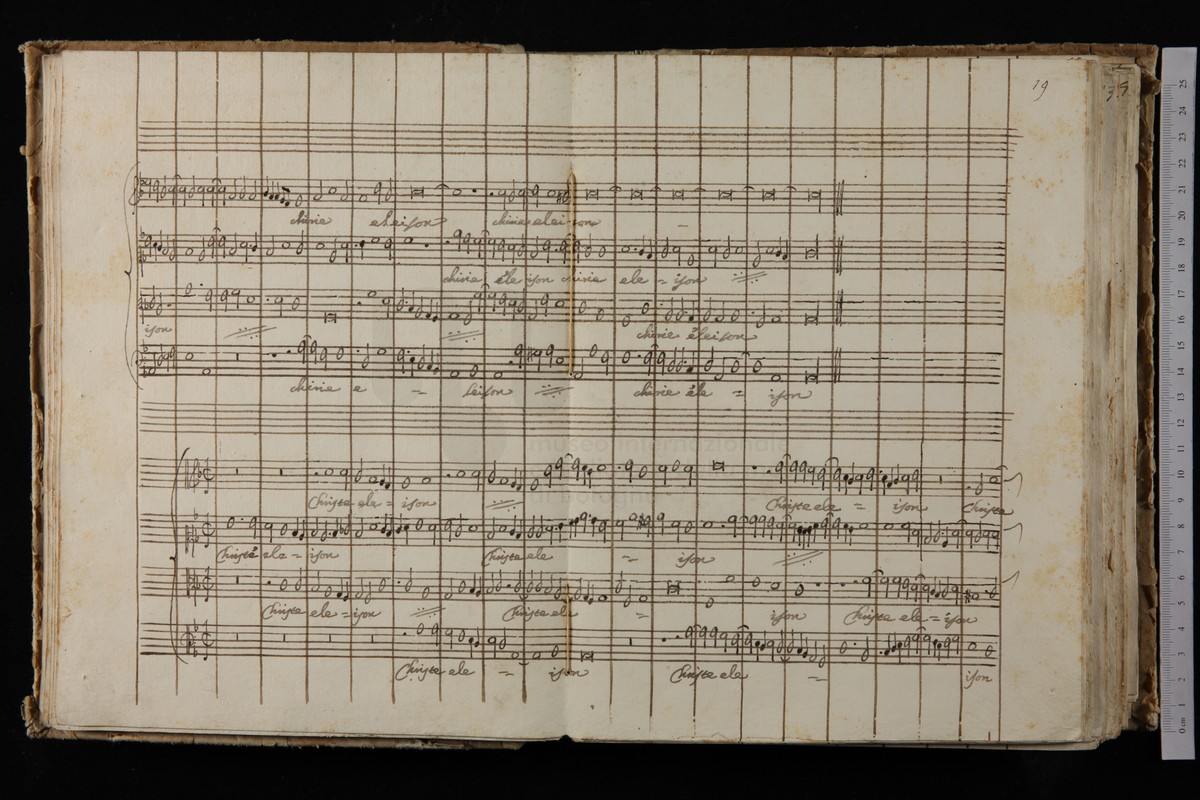 19
chirie eleison chirie eleison
chirie ele ison chirie ele = ison
ison chirie eleison
chirie e = leison chirie ele = ison
museo internazionale
di bologna
Christe ele = ison Christe ele = ison Christe
Christe ele = ison Christe ele = ison
Christe ele = ison Christe ele = ison Christe ele = ison
Christe ele = ison Christe ele = ison
0 cm 1 2 3 4 5 6 7 8 9 10 11 12 13 14 15 16 17 18 19 20 21 22 23 24 25